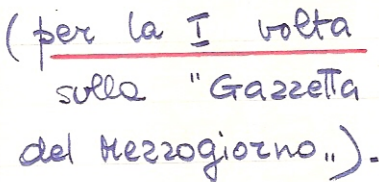 (per la I volta
sulla "Gazzetta
del Mezzogiorno„).